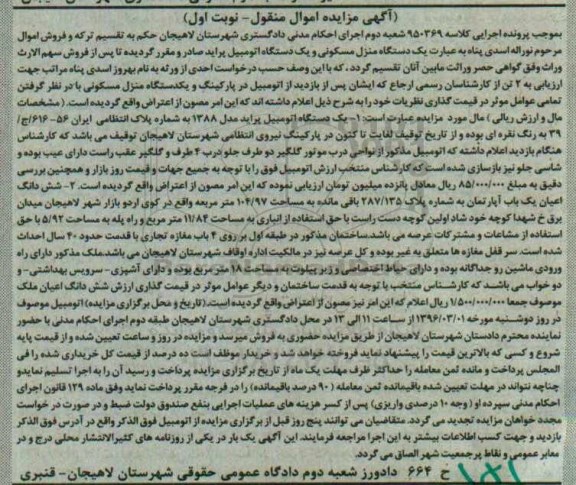 (آگهی مزایده اموال منقول- نوبت اول)
بموجب پرونده اجرایی کلاسه ۹۵۰۳۶۹ شعبه دوم اجرای احکام مدنی دادگستری شهرستان لاهیجان حکم به تقسیم ترکه و فروش اموال
مرحوم نوراله اسدی پناه به عبارت یک دستگاه منزل مسکونی و یک دستگاه اتومبیل پراید صادر و مقرر گردیده تا پس از فروش سهم الارث
وراث وفق گواهی حصر وراثت مابین آنان تقسیم گردد ، که با این وصف حسب درخواست احدی از ورثه به نام بهروز اسدی پناه مراتب جهت
ارزیابی به ۲ تن از کارشناسان رسمی ارجاع که ایشان پس از بازدید از اتومبیل در پارکینگ و یکدستگاه منزل مسکونی با در نظر گرفتن
تمامی عوامل موثر در قیمت گذاری نظریات خود را به شرح ذیل اعلام داشته اند که این امر مصون از اعتراض واقع گردیده است. ( مشخصات
مال و ارزش ریالی ) مال مورد مزایده عبارت است: ۱- یک دستگاه اتومبیل پراید مدل ۱۳۸۸ به شماره پلاک انتظامی ایران ۵۶-۶۱۶/ج/
۳۹ به رنگ نقره ای بوده و از تاریخ توقیف لغایت تا کنون در پارکینگ نیروی انتظامی شهرستان لاهیجان توقیف می باشد که کارشناس
هنگام بازدید اعلام داشته که اتومبیل مذکور از نواحی درب موتور گلگیر دو طرف جلو درب ۴ طرف و گلگیر عقب راست دارای عیب بوده و
شاسی جلو نیز بازسازی شده است که کارشناس منتخب ارزش اتومبیل فوق را با توجه به جمیع جهات و قیمت روز بازار و همچنین بررسی
دقیق به مبلغ ۸۵/۰۰۰/۰۰۰ ریال معادل پانزده میلیون تومان ارزیابی نموده که این امر مصون از اعتراض واقع گردیده است. ۲- شش دانگ
اعیان یک باب آپارتمان به شماره پلاک ۲۸۷/۱۳۵ باقی مانده به مساحت ۱۰۴/۹۷ متر مربعه واقع در کوی اردو بازار شهر لاهیجان میدان
برق خ شهدا کوچه خود شاد اولین کوچه دست راست با حق استفاده از انباری به مساحت ۱۱/۸۴ متر مربع و راه پله به مساحت ۵/۹۲ با حق
استفاده از مشاعات و مشترکات عرصه می باشد.ساختمان مذکور در طبقه اول بر روی ۴ باب مغازه تجاری با قدمت حدود ۴۰ سال احداث
شده است. سر قفل مغازه ها متعلق به غیر بوده و کل عرصه نیز در مالکیت اداره اوقاف شهرستان لاهیجان می باشد.ملک مذکور دارای راه
ورودی ماشین رو جداگانه بوده و دارای حیاط اختصاصی و زیر پیلوت به مساحت ۱۸ متر مربع بوده و دارای آشپزی- سرویس بهداشتی- و
دو خواب می باشد که کارشناس منتخب با توجه به قدمت ساختمان و دیگر عوامل موثر در قیمت گذاری ارزش شش دانگ اعیان ملک
موصوف جمعا ۱/۵۰۰/۰۰۰/۰۰۰ ریال اعلام که این امر نیز مصون از اعتراض واقع گردیده است.(تاریخ و محل برگزاری مزایده) اتومبیل موصوف
در روز دوشنبه مورخه ۱۳۹۶/۰۳/۰۱ از ساعت ۱۱ الی ۱۳ در محل دادگستری شهرستان لاهیجان طبقه دوم اجرای احکام مدنی با حضور
نماینده محترم دادستان شهرستان لاهیجان از طریق مزایده حضوری به فروش میرسد و مزایده در روز و ساعت تعیین شده و از قیمت پایه
شروع و کسی که بالاترین قیمت را پیشنهاد نماید فروخته خواهد شد و خریدار موظف است ده درصد از قیمت کل خریداری شده را فی
المجلس پرداخت و مانده ثمن معامله را حداکثر ظرف مهلت یک ماه از تاریخ برگزاری مزایده پرداخت و رسید آن را به اجرا تسلیم نمایدو
چناچه نتواند در مهلت تعیین شده باقیمانده ثمن معامله (۹۰ درصد باقیمانده) را در فرجه مقرر پرداخت نماید وفق ماده ۱۲۹ قانون اجرای
احکام مدنی سپرده او ( وجه ۱۰ درصدی واریزی) پس از کسر هزینه های عملیات اجرایی بنفع صندوق دولت ضبط و در صورت در خواست
مجدد خواهان مزایده تجدید می گردد. متقاضیان می توانند پنج روز قبل از برگزاری مزایده از اتومبیل فوق الذکر واقع در آدرس فوق الذکر
بازدید و جهت کسب اطلاعات بیشتر به این اجرا مراجعه فرمایند. این آگهی یک بار در یکی از روزنامه های کثیرالانتشار محلی درج و در
معابر عمومی و نقاط پرجمعیت شهر الصاق می گردد.
خ ۶۶۴ دادورز شعبه دوم دادگاه عمومی حقوقی شهرستان لاهیجان- قنبری